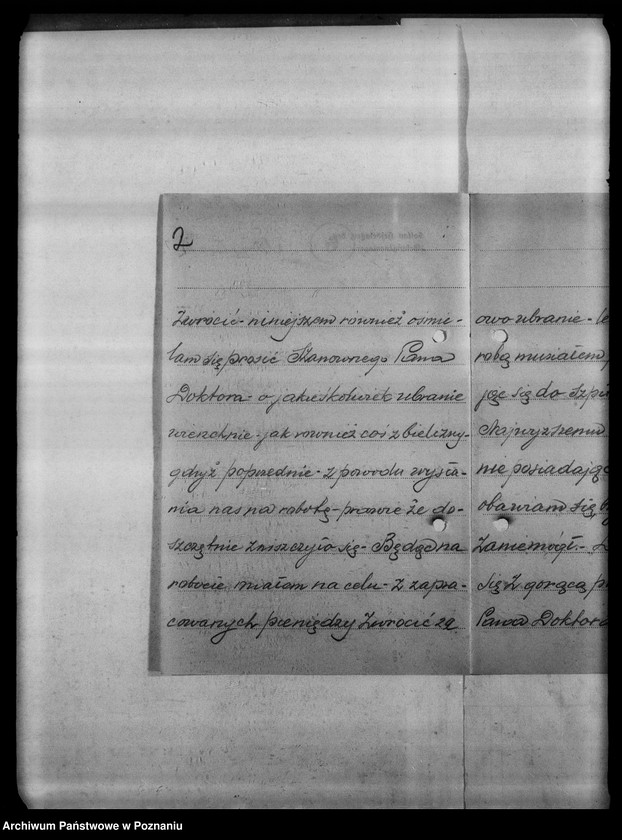 2
Zwrócić - niniejszem również ośmie-
lam się prosić Szanownego Pana
Doktora - o jakieśkolwiek ubranie
wierzchnie - jak również coś z bielizny -
gdyż poprzednie - z powodu wysła-
nia nas na robotę - prawie że do-
szczętnie zniszczyło się - Będąc na
robocie miałem na celu - z zapra-
cowanych pieniędzy zwrócić za
owo ubranie - le
robą musiałem
jąc się do szpi
Najwyższemu
nie posiadając
obawiam się, b
zaniemógł. -
się z gorącą p
Pana Doktora
Archiwum Państwowe w Poznaniu